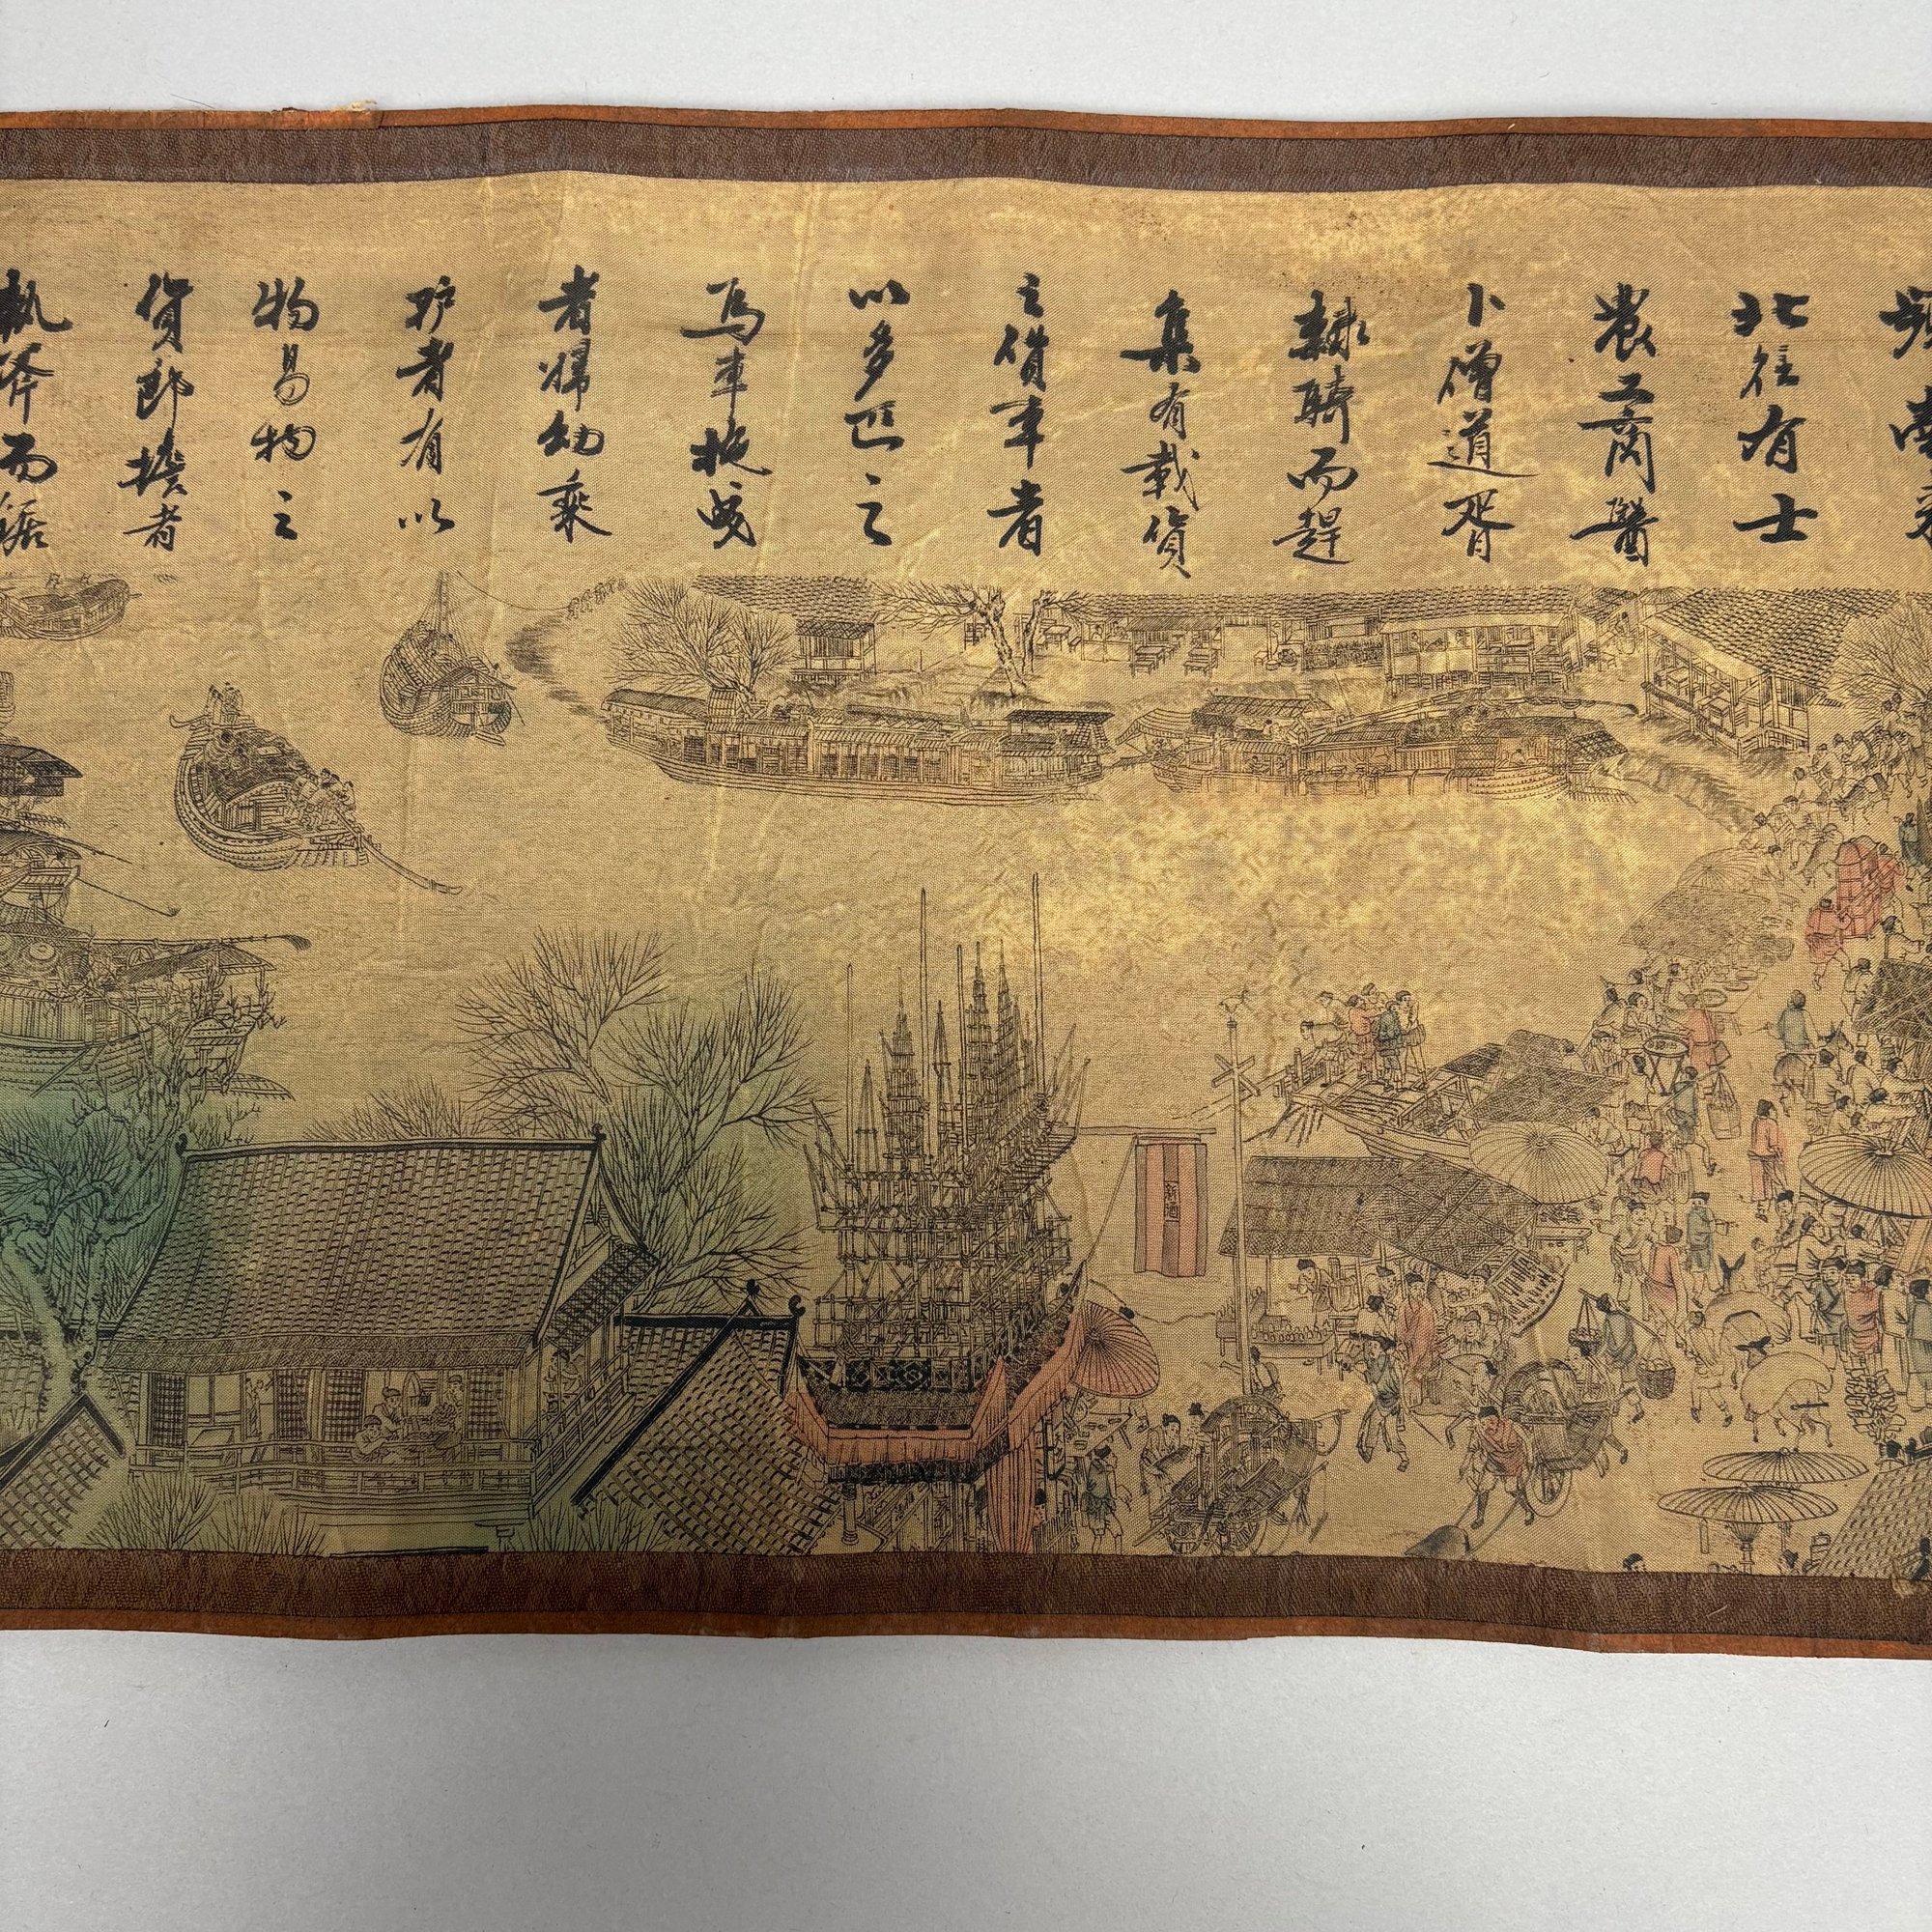 北往有士
農工商醫
卜僧道胥
隸騎而趕
集有載貨
之借車者
以多匹之
馬車拖曳
者婦幼乘
驴者有以
物易物之
貨郎擔者
執斧而鋸
新酒